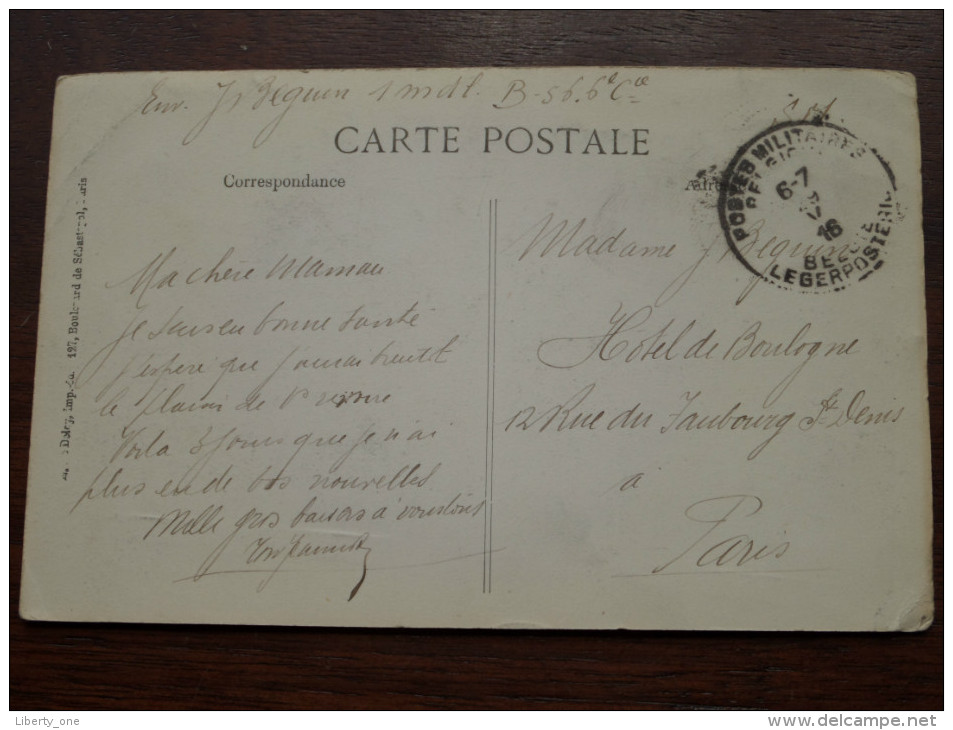 Env. J Beguin 1 mdl. B-56. 6e Cie
S.M.
CARTE POSTALE
Correspondance
POSTES MILITAIRES
6-7
IV
16
BELGIE
LEGERPOSTERIJ
Imp. 127, Boulevard de Sébastopol, Paris
Ma chère Maman
Je suis en bonne santé
j'espère que j'aurai bientôt
le plaisir de
Voila 3 jours que je n'ai
plus eu de vos nouvelles
Mille gros baisers à vous tous
Ton
Madame J Beguin
Hôtel de Boulogne
12 Rue du Faubourg St Denis
à
Paris
Liberty_one
http://www.delcampe.net